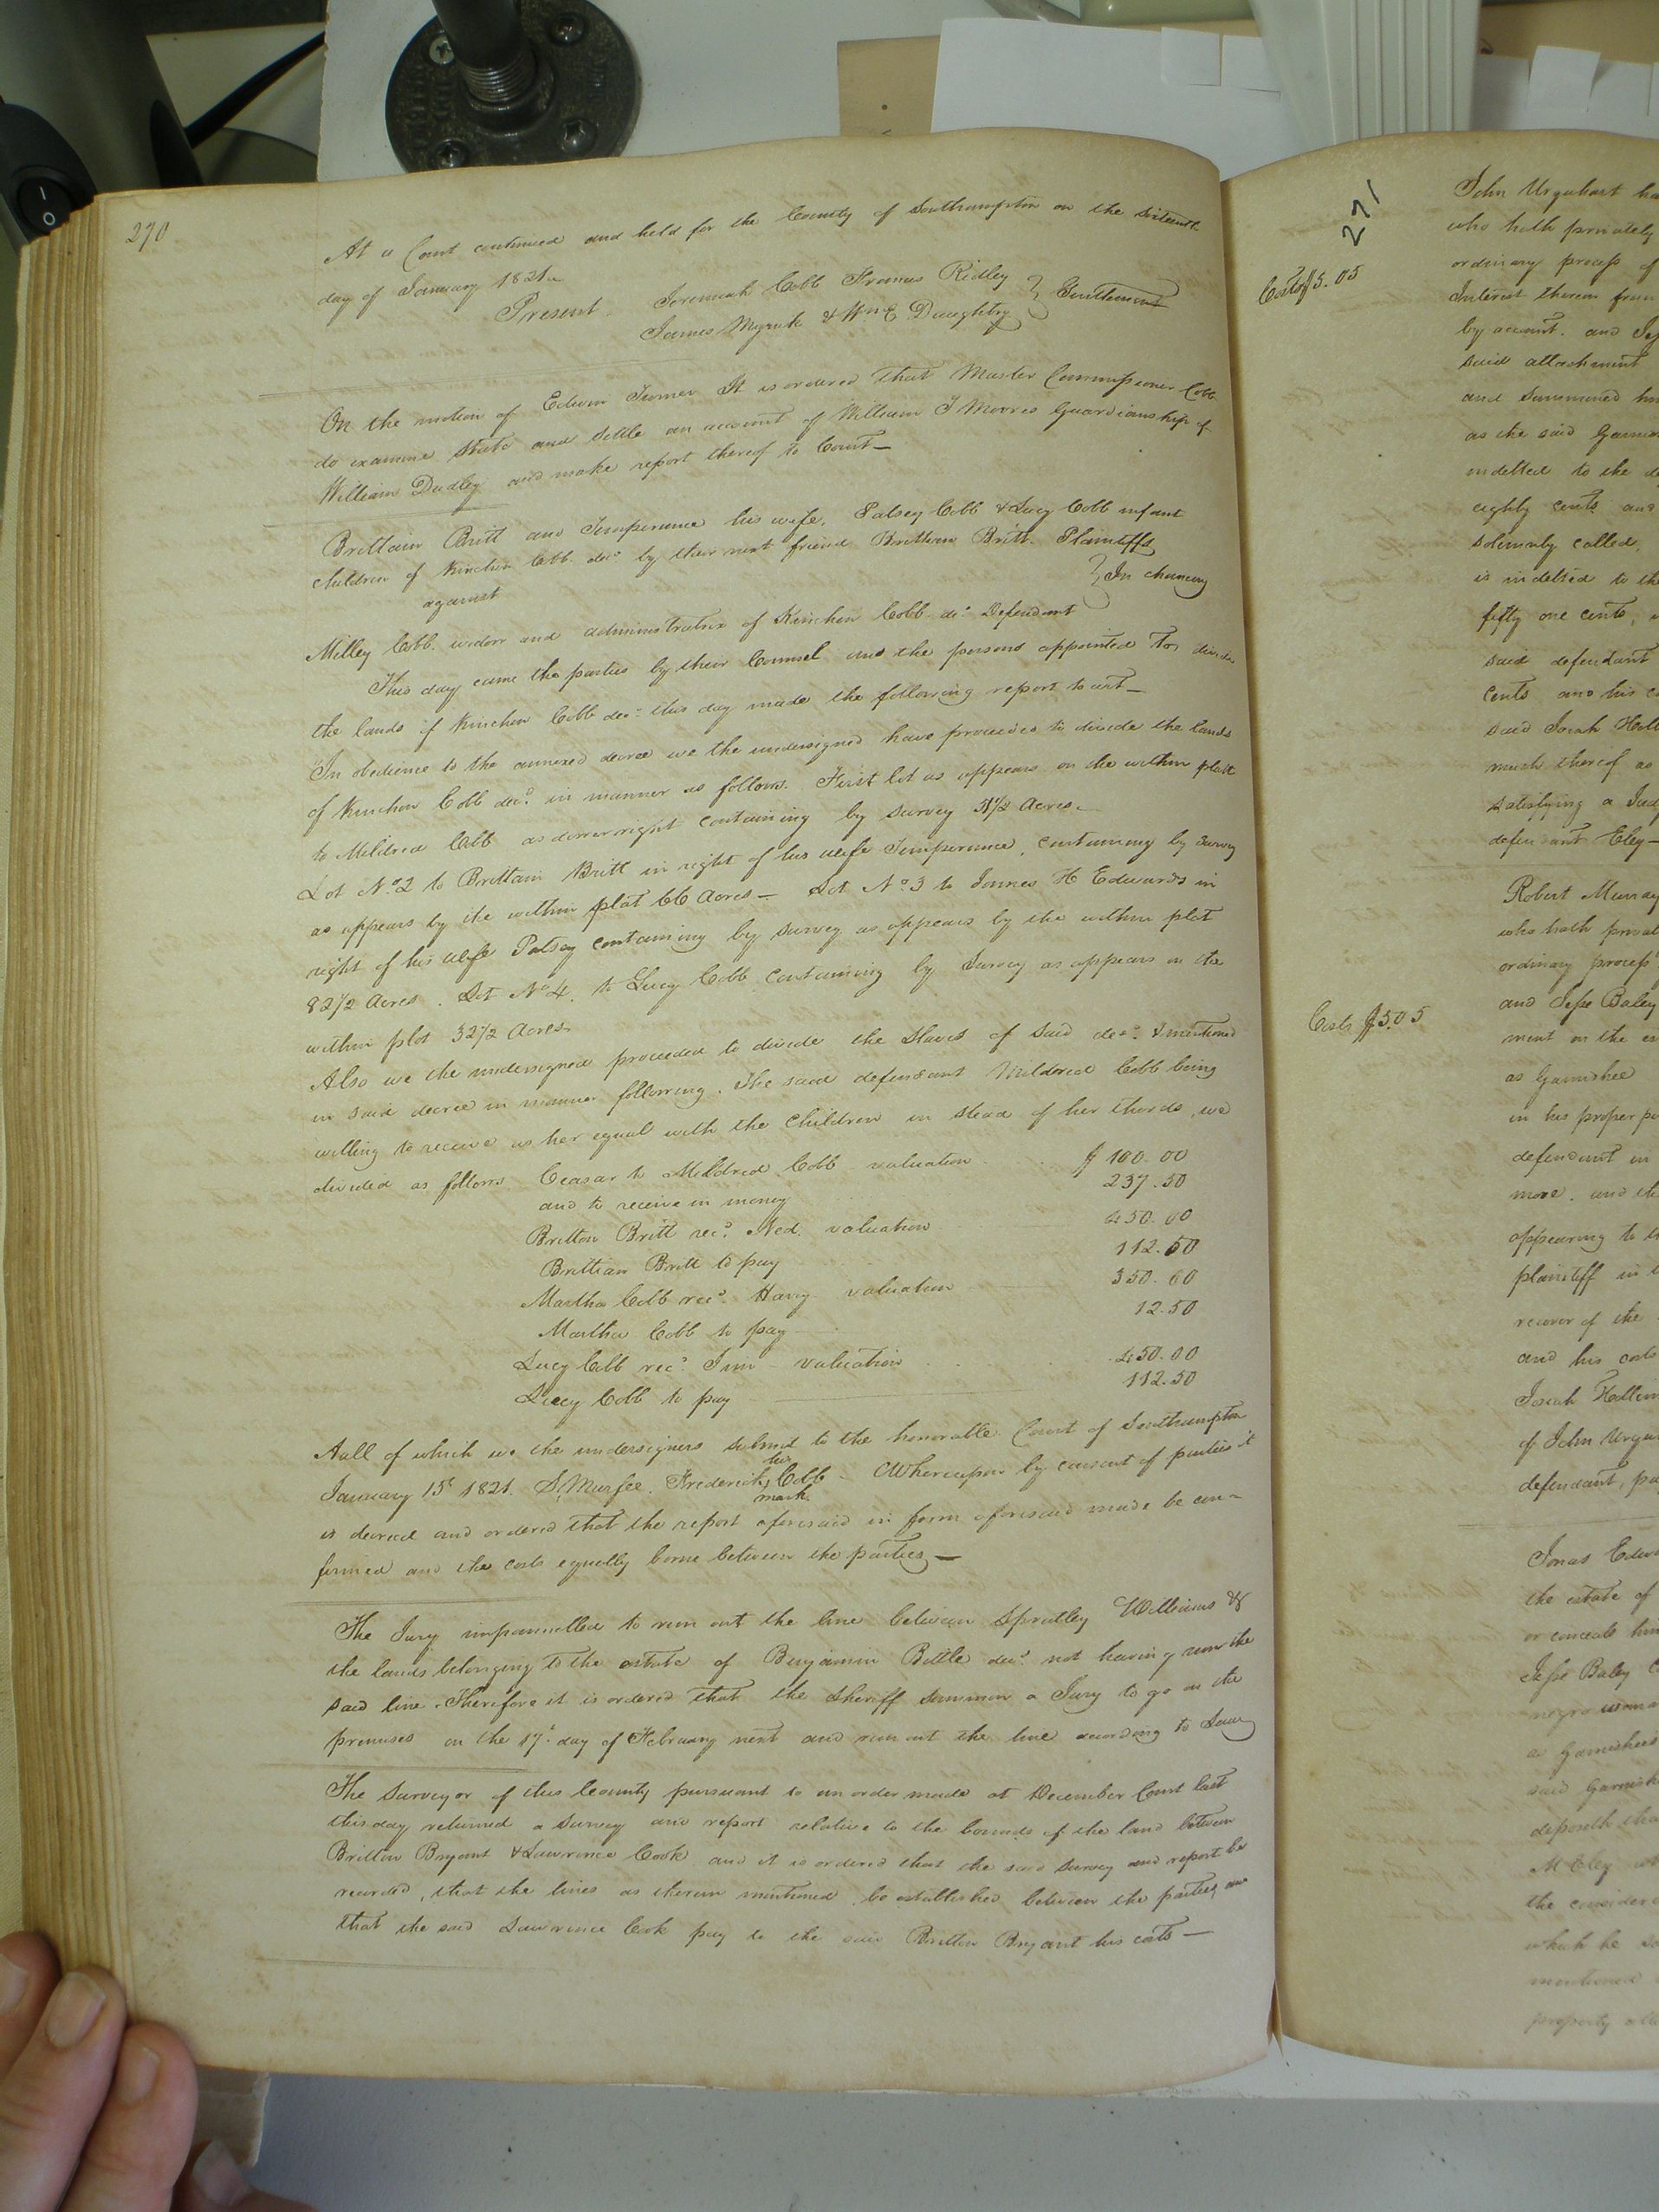 270
At a Court continued and held for the County of Southampton on the Sixteenth
day of January 1821.
Present Jeremiah Cobb Francis Ridley } Gentlemen
James Myrick & Wm E Daughtry
On the motion of Edwin Turner It is ordered that Master Commissioner Cobb
do examine State and Settle an account of William J Moores Guardianship of
William Dudley and make report thereof to Court—
Brittain Britt and Temperance his wife, Patsey Cobb & Lucy Cobb infant
children of Kinchen Cobb decd by their next friend Brittain Britt. Plaintiffs
against } In chancery
Milley Cobb widow and administratrix of Kinchen Cobb decd Defendant
This day came the parties by their Counsel and the persons appointed to divide
the lands of Kinchen Cobb decd this day made the following report to wit—
In obedience to the annexed decree we the undersigned have proceeded to divide the lands
of Kinchen Cobb decd in manner as follows. First lot as appears on the within plat
to Mildred Cobb as dower right containing by survey 31½ Acres.
Lot No 2 to Brittain Britt in right of his wife Temperance, containing by survey
as appears by the within plat 66 Acres— Lot No 3 to James H Edwards in
right of his wife Patsey containing by survey as appears by the within plot
82½ Acres. Lot No 4. to Lucy Cobb containing by Survey as appears in the
within plot 32½ Acres.
Also we the undersigned proceeded to divide the Slaves of said decd & mentioned
in said decree in manner following. The said defendant Mildred Cobb being
willing to receive as her equal with the Children in stead of her thirds, we
divided as follows Ceasar to Mildred Cobb valuation $ 100.00
and to receive in money 237.50
Britton Britt recd Ned. valuation 450.00
Brittian Britt to pay 112.50
Martha Cobb recd Harry valuation 350.00
Martha Cobb to pay 12.50
Lucy Cobb recd Jim valuation 450.00
Lucy Cobb to pay 112.50
Aall of which we the undersigners submit to the honorable Court of Southampton
January 15t 1821. Murfee. Frederick his mark Cobb— Whereupon by consent of parties it
is decreed and ordered that the report aforesaid in form aforesaid made be con-
firmed and the costs equally borne between the parties—
The Jury impannelled to run out the line between Spratley Williams &
the lands belonging to the estate of Benjamin Bittle decd not having run the
said line. Therefore it is ordered that the Sheriff summon a Jury to go on the
premises on the 17t day of February next and run out the line according to Law
The Surveyor of this County pursuant to an order made at December Court last
this day returned a Survey and report relative to the bounds of the land between
Britton Bryant & Lawrence Cook and it is ordered that the said survey and report be
recorded, that the lines as therein mentioned be established between the parties and
that the said Lawrence Cook pay to the said Britton Bryant his costs—
271
Costs $5.05
Costs $5.05
John Urquhart
who hath privately
ordinary process of
Interest thereon from
by account. and
said attachment
and Summoned
as the said
indebted to the
eighty cents and
solemnly called,
is indebted to the
fifty one cents,
said defendant
cents and his
said Josiah
much thereof as
satisfying a
defendant Eley—
Robert Murray
who hath
ordinary process
and Jesse Baley
ment on the
as Garnishee
in his proper
defendant in
more. and
appearing to
plaintiff in
recover of the
and his costs
Josiah
of John
defendant,
Jonas
the estate of
or conceals
Jesse Baley
negro
as Garnishee
said
deposeth that
the
which he
mentioned
property